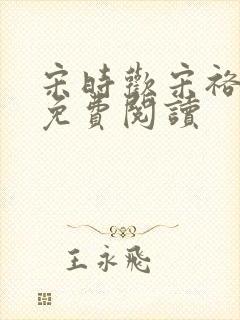 宋時歡宋裕
免費閱讀
王永飛